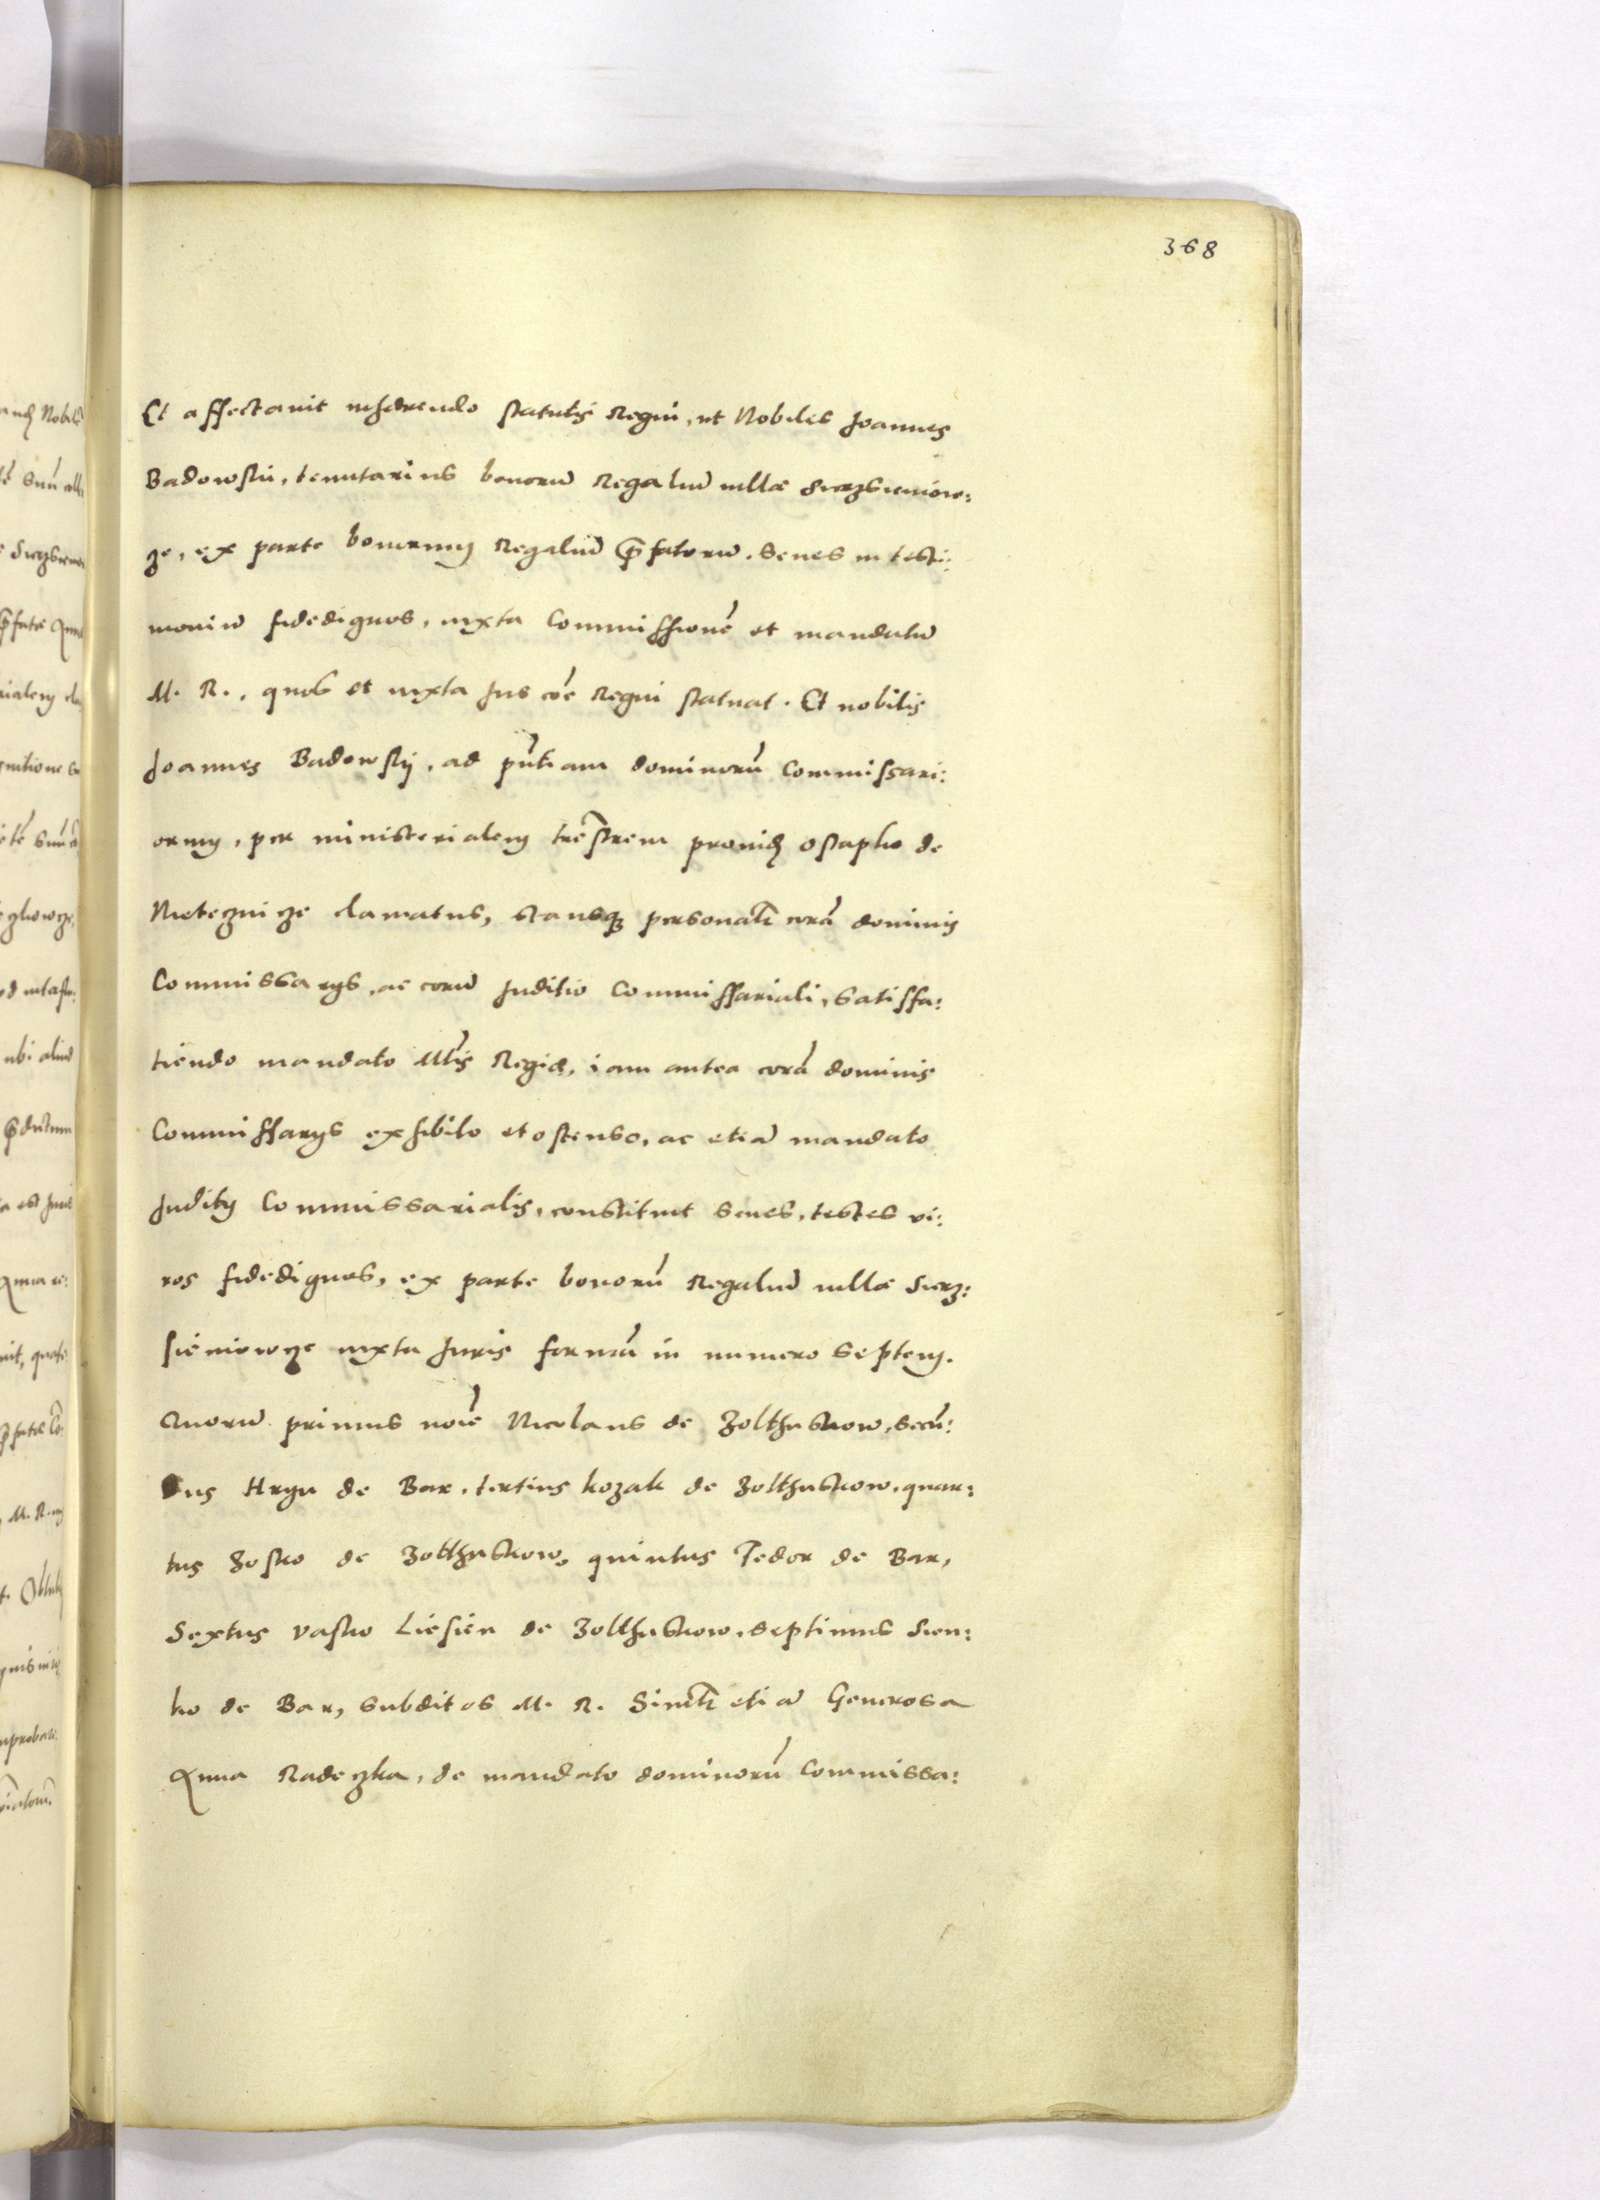 368
Et affectavit inhærendo statutis Regni, ut Nobiles Joannes
Badowskii, tenutarius bonorũ Regaliũ villæ Sierzsieniow:
ze, ex parte bonorum Regaliũ p̃fatorũ. Senes in testi:
moniũ fidedignos, iuxta Commissionẽ et mandatũ
M. R., quos et iuxta Jus cõe Regni statuat. Et nobilis
Joannes Badowsky, ad pñtiam dominorũ Commissari:
orum, per ministerialem trẽstrem providũ Ostapko de
Nieteczincze clamatus, stansq; personalr̃ corã dominis
Commissarys, ac eorũ Juditio Commissariali, satisffa:
tiendo mandato Mtis̃ Regiæ, iam antea corã dominis
Commissarys exhibito et ostenso, ac etiã mandato
Juditij Commissarialis, constituit senes, testes vi:
ros fidedignos, ex parte bonorũ Regaliũ villæ Sierz:
sieniowcze iuxta Juris formã in numero septem.
Quorũ primus noĩe Nicolaus de Zolthuskow, secũ:
dus Hryn de Bar, tertius kozak de Zolthuskow, quar:
tus Zosko de Zolthuskow, quintus Fedor de Bar,
Sextus Vasko Liesien de Zolthuskow, septimus Sien:
ko de Bar, subditos M. R. Simlr̃ etiã Generosa
Anna Radeczka, de mandato dominorũ Commissa: